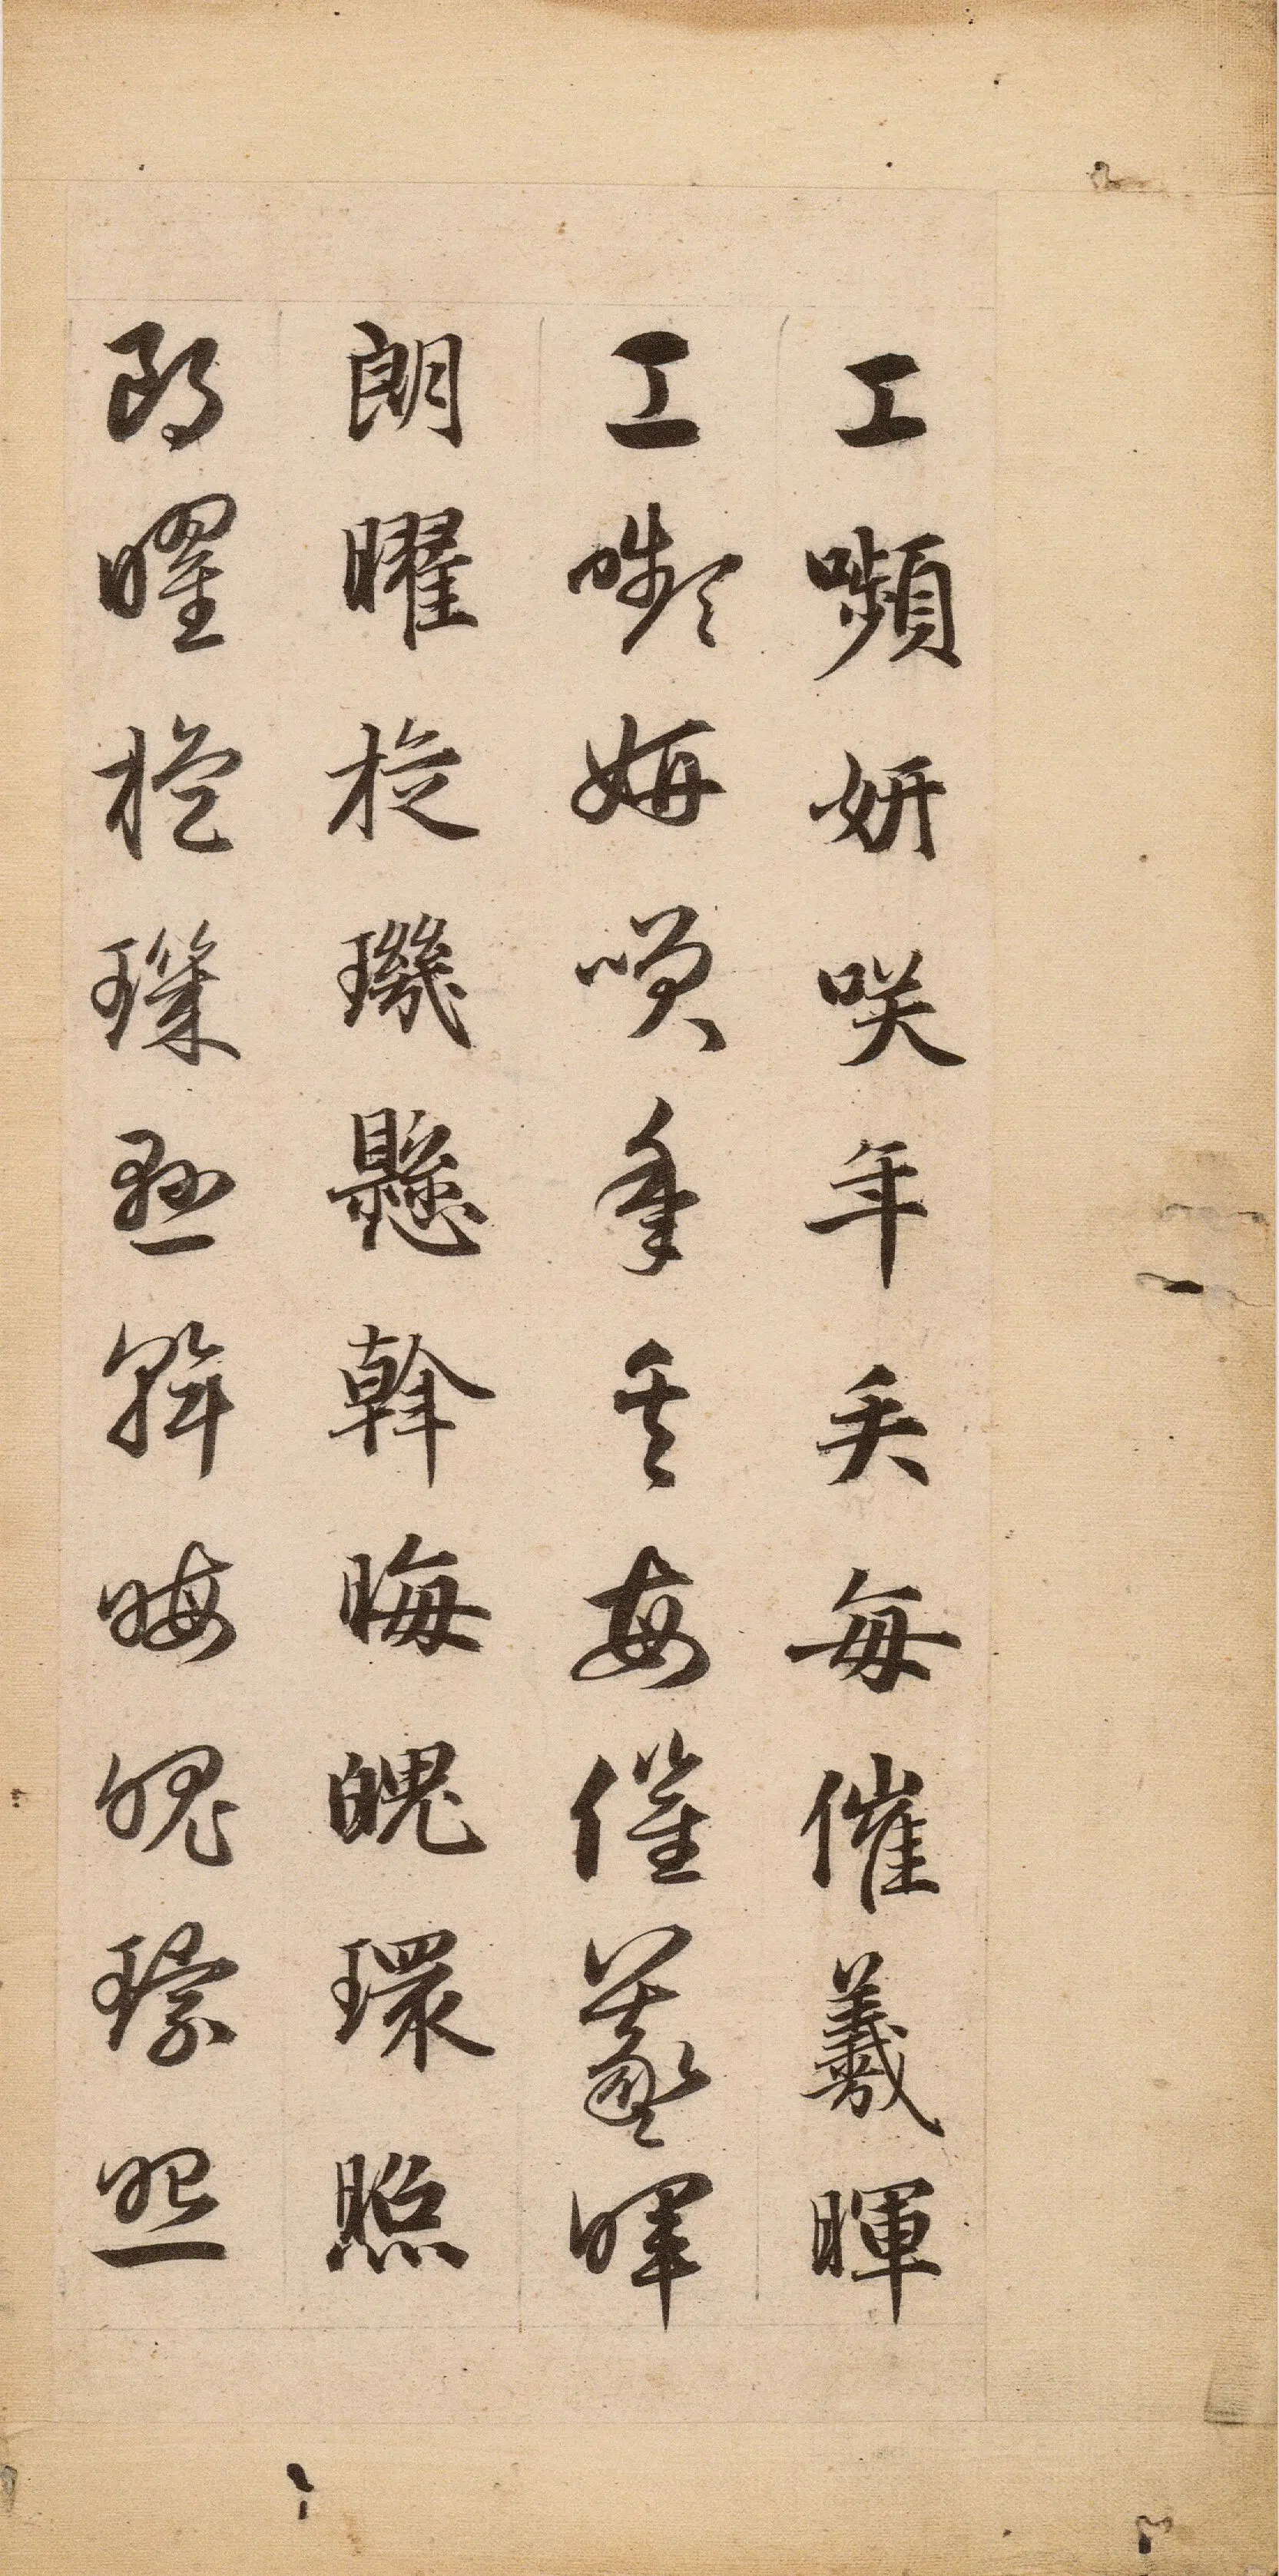 工嚬妍咲年矢每催羲暉
工嚬妍咲年矢每催羲暉
朗曜旋璣懸斡晦魄環照
朗曜旋璣懸斡晦魄環照